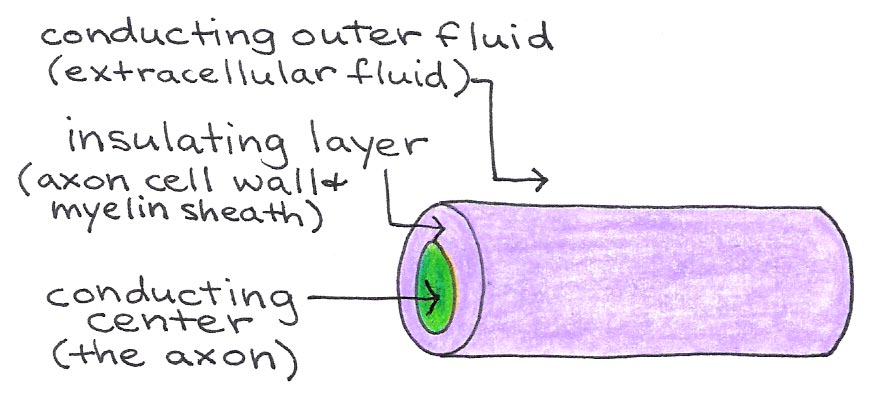 conducting outer fluid
(extracellular fluid)
insulating layer
(axon cell wall &
myelin sheath)
conducting
center
(the axon)